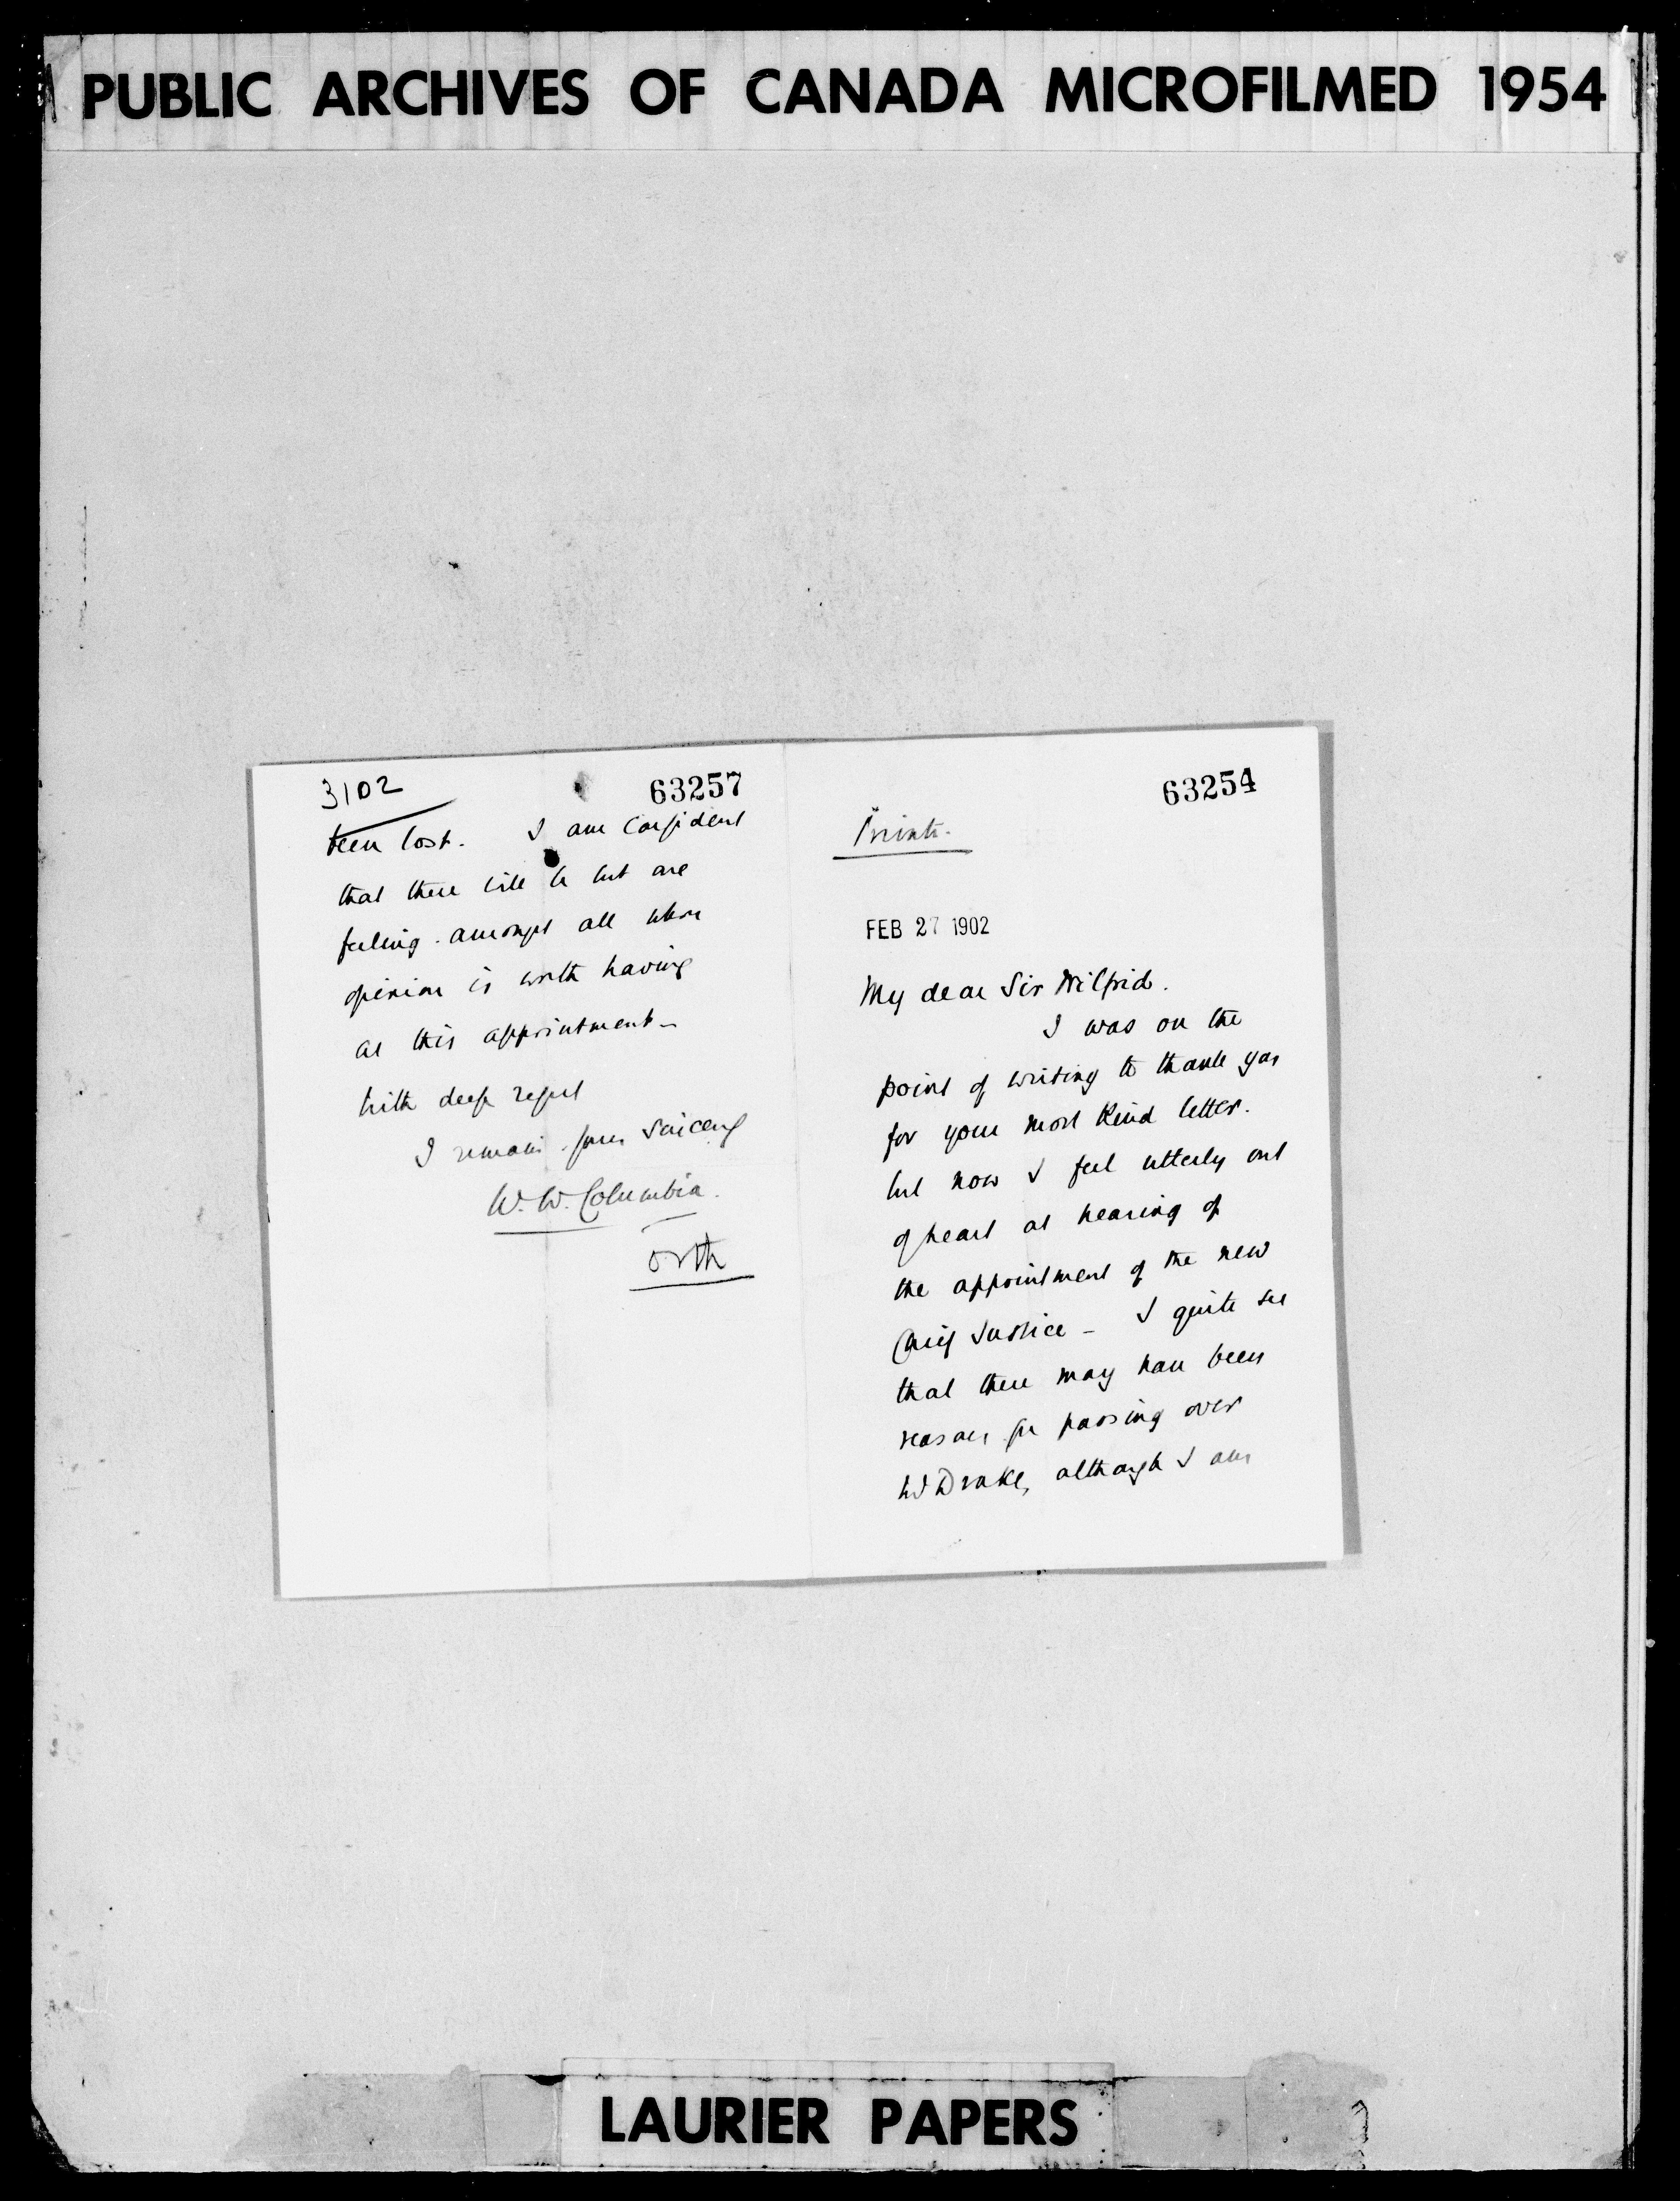 PUBLIC ARCHIVES OF CANADA MICROFILMED 1954
3102
63257
been lost. I am confident
that there will be but one
feeling amongst all whose
opinion is worth having
as this appointment -
With deep regret
I remain yours sincerely
W. W. Columbia.
Orth
63254
Private.
FEB 27 1902
My dear Sir Wilfrid.
I was on the
point of writing to thank you
for your most kind letter.
but now I feel utterly out
of heart at hearing of
the appointment of the new
Chief Justice - I quite see
that there may have been
reasons for passing over
Drake, although I am
LAURIER PAPERS